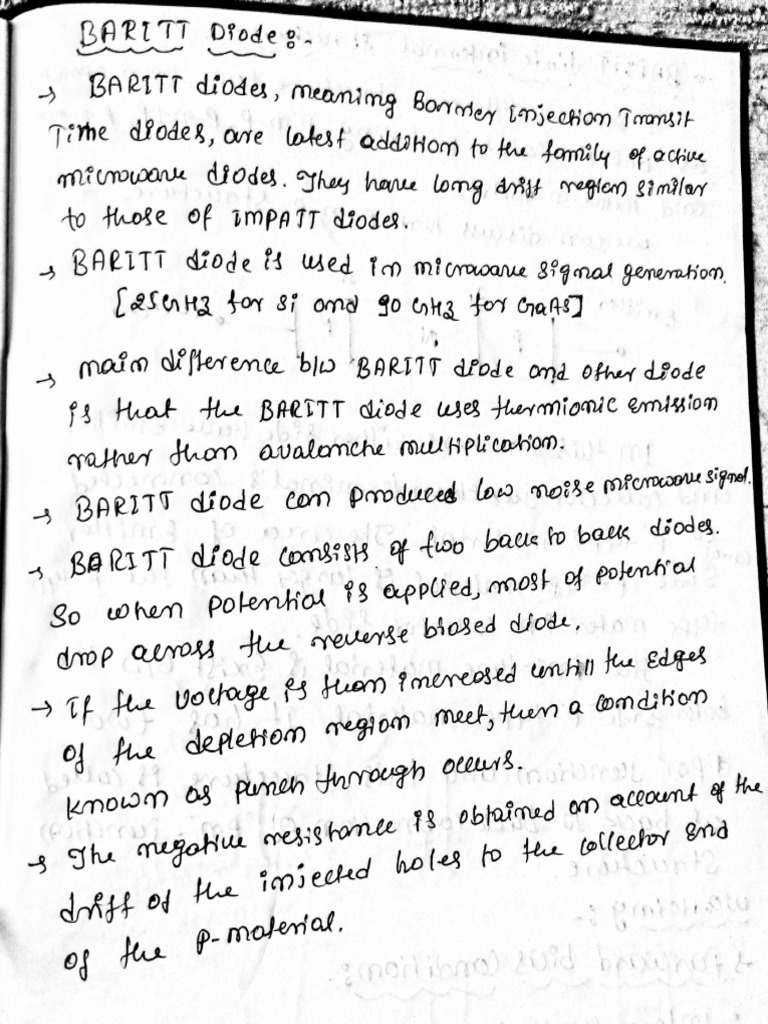 BARITT Diode :-
→ BARITT diodes, meaning Barrier Injection Transit
Time diodes, are latest addition to the family of active
microwave diodes. They have long drift region similar
to those of IMPATT diodes.
→ BARITT diode is used in microwave signal generation.
[25GHz for Si and 90 GHz for GaAs]
→ main difference b/w BARITT diode and other diode
is that the BARITT diode uses thermionic emission
rather than avalanche multiplication.
→ BARITT diode can produced low noise microwave signal.
→ BARITT diode consists of two back to back diodes.
So when potential is applied, most of potential
drop across the reverse biosed diode.
→ If the voltage is than increased untill the edges
of the depletion region meet, then a condition
known as punch through occurs.
→ The negative resistance is obtained on account of the
drift of the injected holes to the collector end
of the p-material.